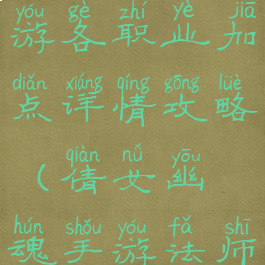 yóu gè zhí yè jiā
游各职业加
diǎn xiáng qíng gōng lüè
点详情攻略
qiàn nǚ yōu
(倩女幽
hún shǒu yóu fǎ shī
魂手游法师